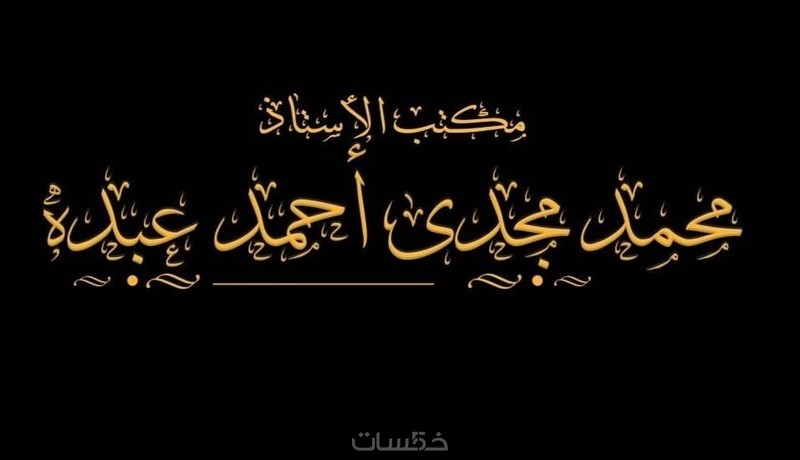 مكتب الأستاذ
محمد مجدى أحمد عبده
خمسات